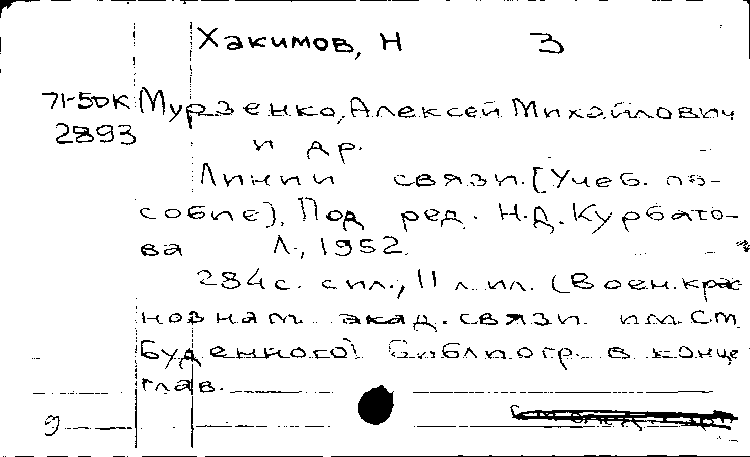 Хакимов, Н 3
71-5DK Мурзенко, Алексей Михайлович
2893 и др.
Линии связи. [Учеб. по-
собие]. Под ред. Н.Д. Курбато-
ва Л., 1952.
284с. с ил., 11 л. ил. (Воен. крас
нознам. акад. связи им. С.М.
Буденного) Библиогр. в конце
глав.
9